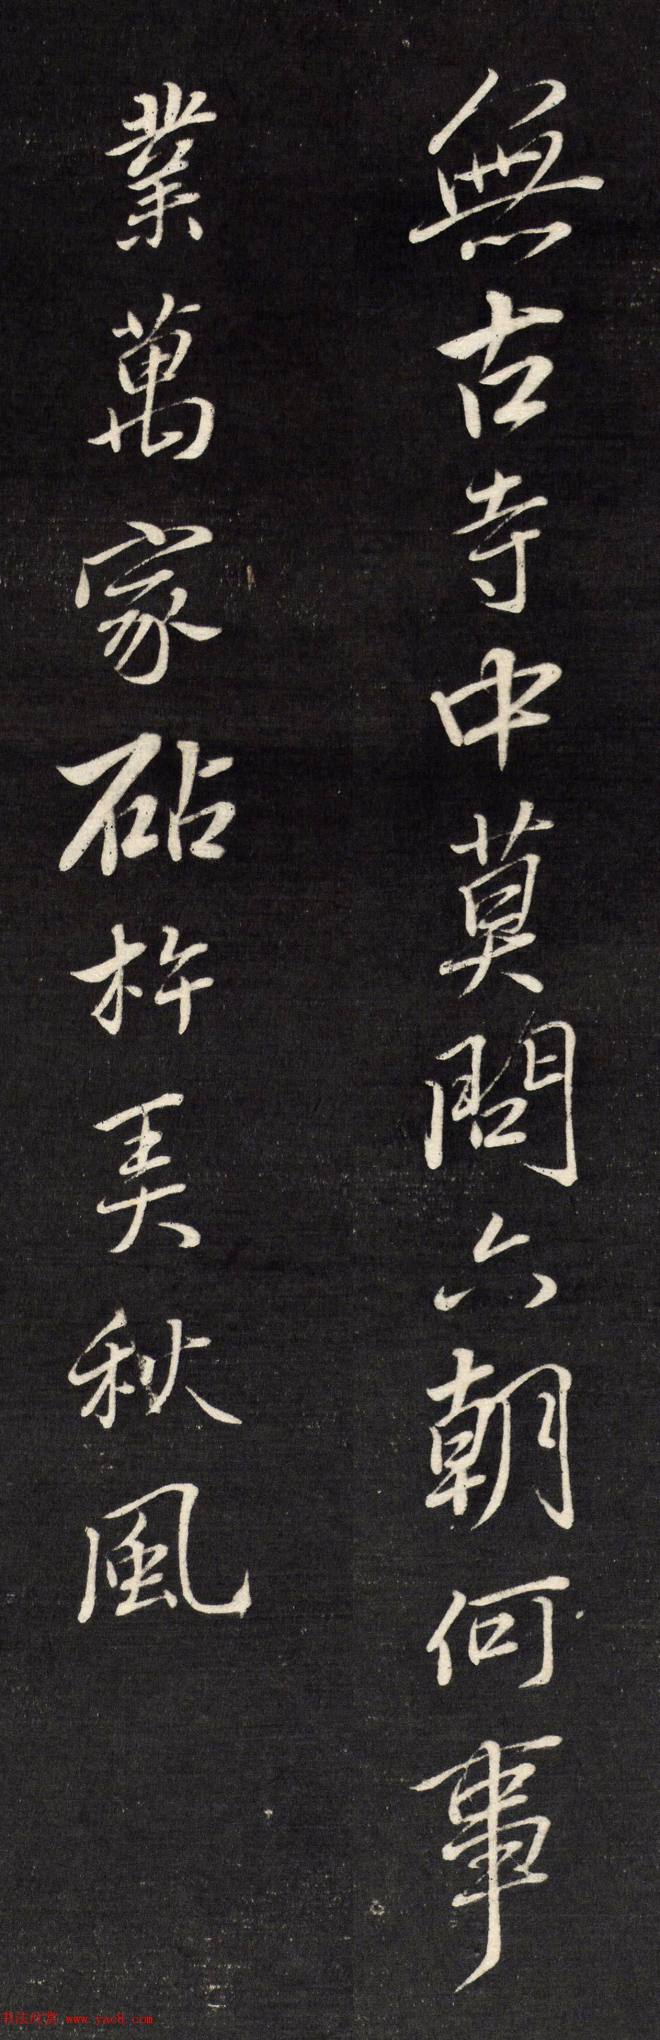 無古寺中莫問六朝何事
業萬家砧杵美秋風
书法欣赏 www.yac8.com